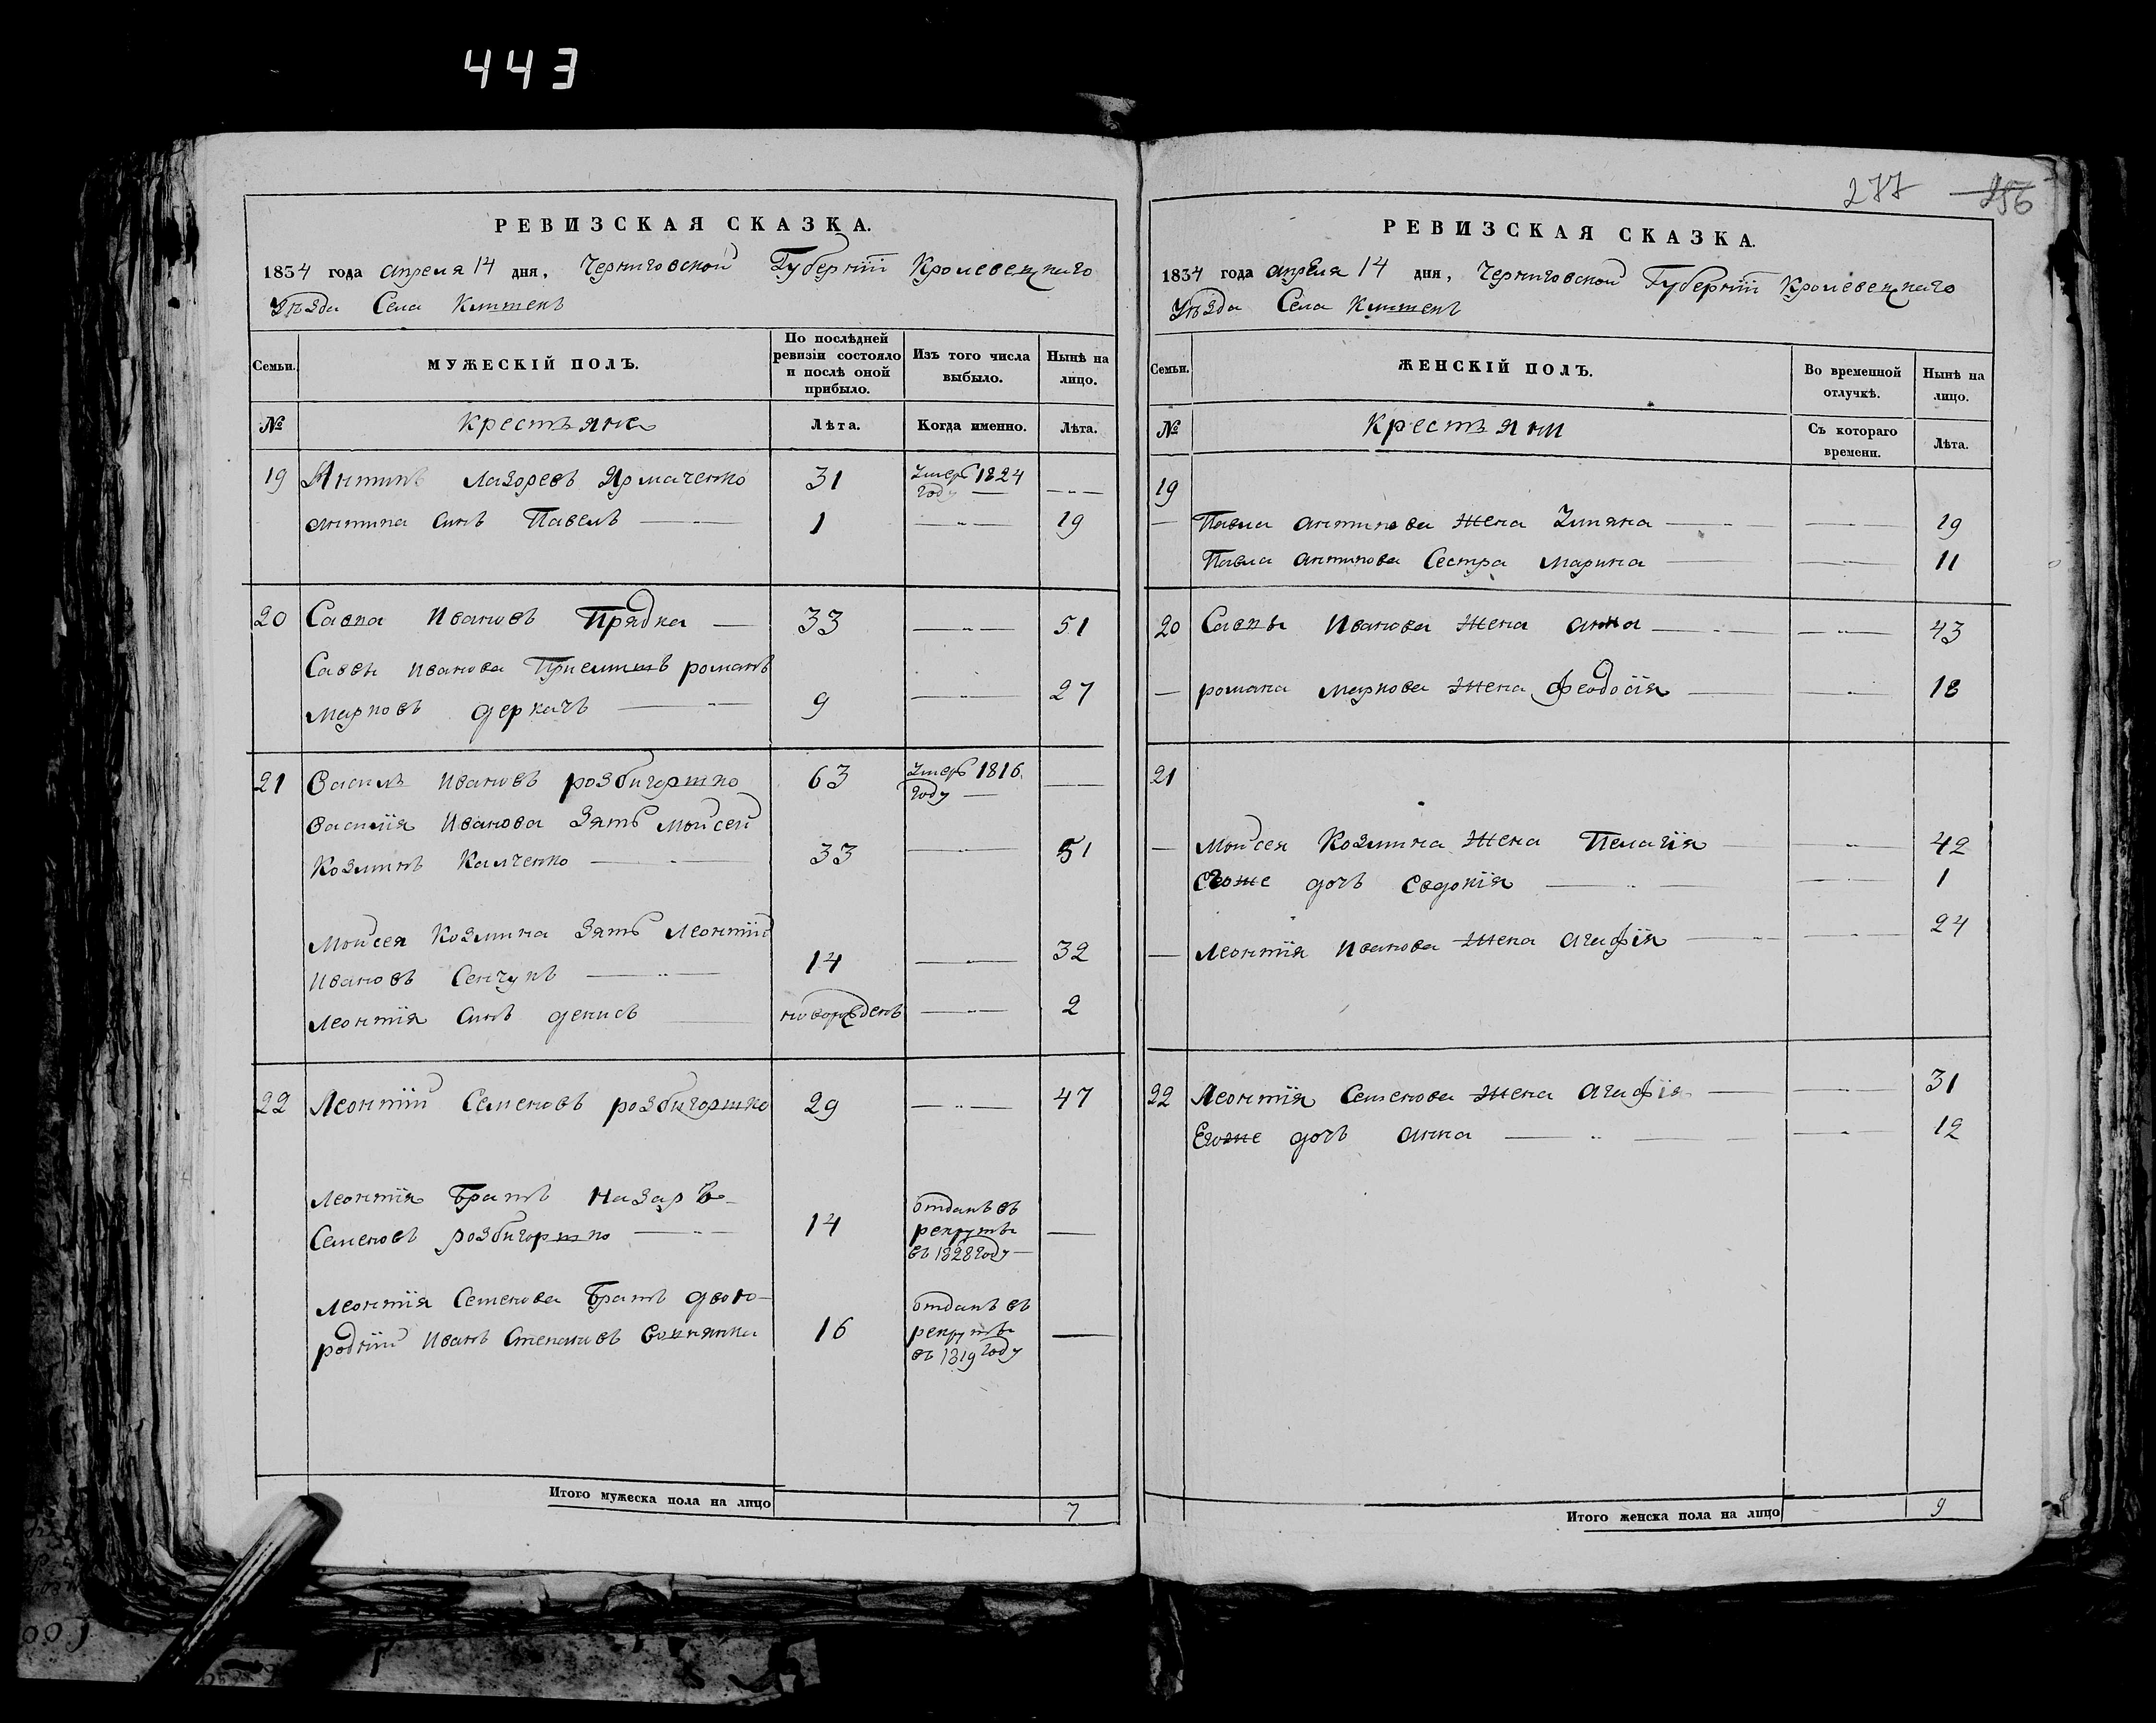 443
277 256
РЕВИЗСКАЯ СКАЗКА.
1834 года апреля 14 дня, Черниговской Губерніи Кролевецкаго
Уѣзда Села Клишекъ
Семьи. МУЖЕСКІЙ ПОЛЪ. По послѣдней ревизіи состояло и послѣ оной прибыло. Изъ того числа выбыло. Нынѣ на лицо.
№ Крестьяне Лѣта. Когда именно. Лѣта.
19 Антипъ Лазоревъ Ярмаченко 31 Умеръ 1824 году
антипа Синъ Павелъ 1 19
20 Савка Ивановъ Прядка 33 51
Савки Иванова Приемишъ романъ
марковъ деркачъ 9 27
21 Василь Ивановъ розбигоршко 63 Умеръ 1816 году
Василія Иванова Зять Мойсей
Козминъ Калченко 33 51
Мойсея Козмина Зять Леонтій
Ивановъ Сенчукъ 14 32
Леонтія Синъ денисъ новорожденъ 2
22 Леонтій Семеновъ розбигоршко 29 47
Леонтія Братъ Назаръ
Семеновъ розбигоршко 14 отданъ въ рекруты въ 1828 году
Леонтія Семенова Братъ двою-
родній Иванъ Степановъ 16 отданъ въ рекруты въ 1819 году
Итого мужеска пола на лицо 7
РЕВИЗСКАЯ СКАЗКА.
1834 года апреля 14 дня, Черниговской Губерніи Кролевецкаго
Уѣзда Села Клишекъ
Семьи. ЖЕНСКІЙ ПОЛЪ. Во временной отлучкѣ. Нынѣ на лицо.
№ Крестьяни Съ котораго времени. Лѣта.
19
Павла антипова жена Улияна 19
Павла антипова Сестра марина 11
20 Савки Иванова жена анна 43
романа маркова жена феодосія 18
21
Мойсея Козмина жена Пелагія 42
Егоже дочъ Евдокія 1
Леонтія Иванова жена агафія 24
22 Леонтія Семенова жена агафія 31
Егоже дочъ анна 12
Итого женска пола на лицо 9